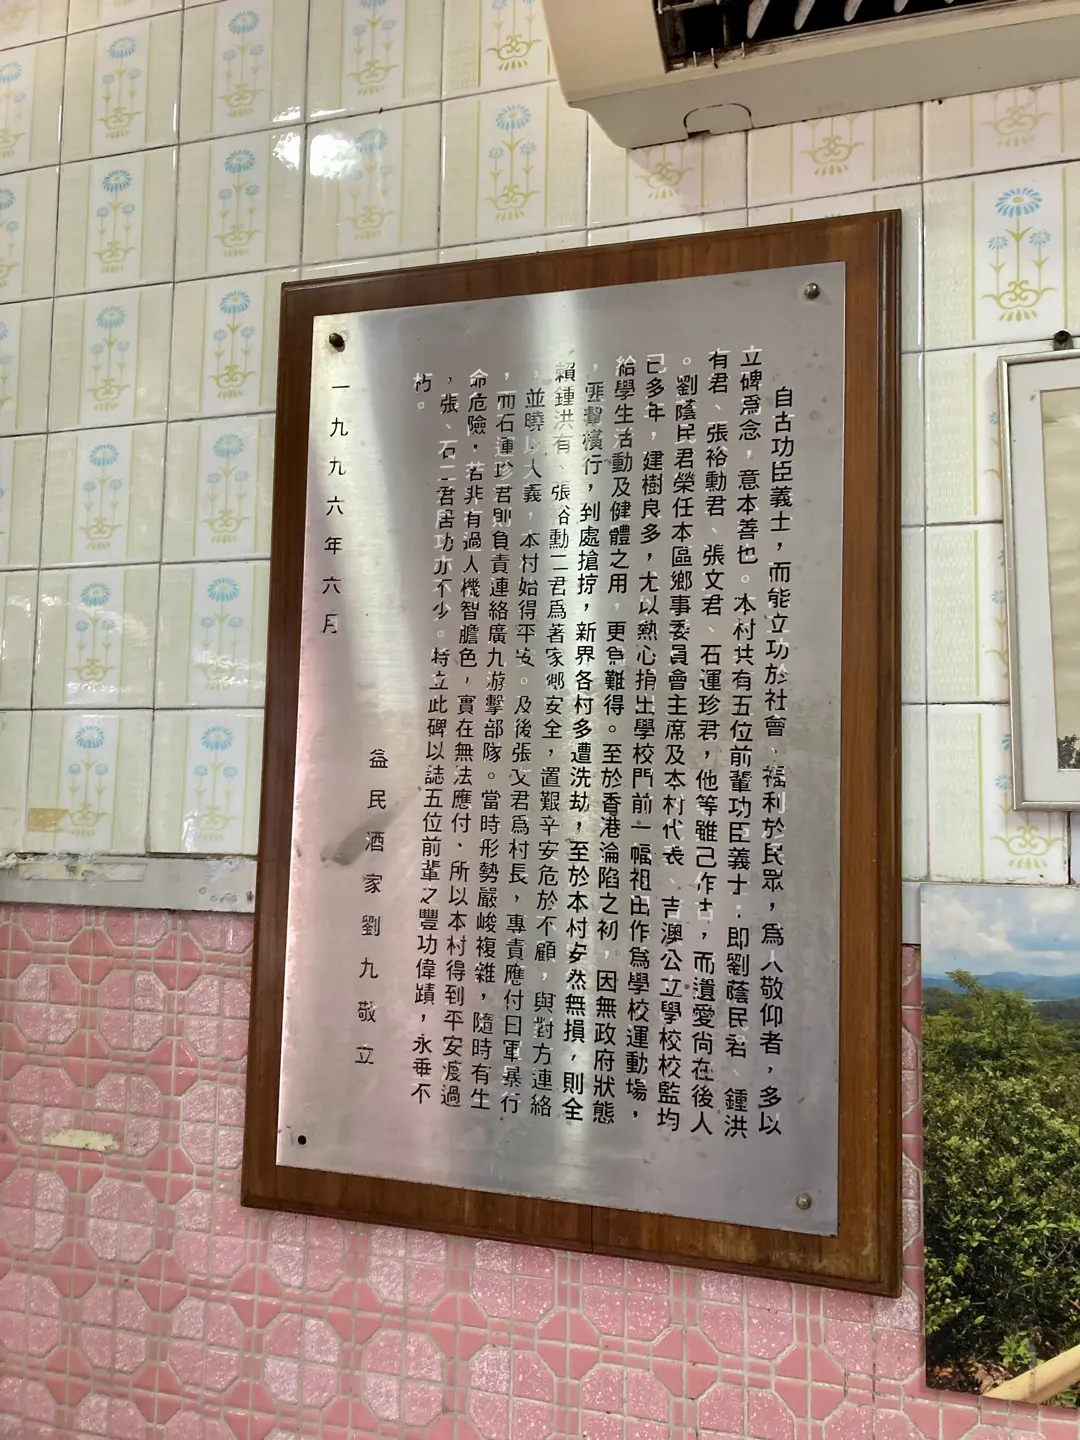 自古功臣義士，而能立功於社會、福利於民眾，為人敬仰者，多以
立碑爲念，意本善也。本村共有五位前輩功臣義士：即劉蔭民君、鍾洪
有君、張裕勳君、張文君、石運珍君，他等雖已作古，而遺愛尚在後人
。劉蔭民君榮任本區鄉事委員會主席及本村代表、吉澳公立學校校監均
已多年，建樹良多，尤以熱心捐出學校門前一幅祖田作爲學校運動場，
給學生活動及健體之用，更爲難得。至於香港淪陷之初，因無政府狀態
，匪羣橫行，到處搶掠，新界各村多遭洗劫，至於本村安然無損，則全
賴鍾洪有、張裕勳二君爲著家鄉安全，置艱辛安危於不顧，與對方連絡
，並曉以大義，本村始得平安。及後張文君爲村長，專責應付日軍暴行
，而石運珍君則負責連絡廣九游擊部隊。當時形勢嚴峻複雜，隨時有生
命危險，若非有過人機智膽色，實在無法應付、所以本村得到平安渡過
，張、石二君居功亦不少。特立此碑以誌五位前輩之豐功偉蹟，永垂不
朽。
益民酒家劉九敬立
一九九六年六月